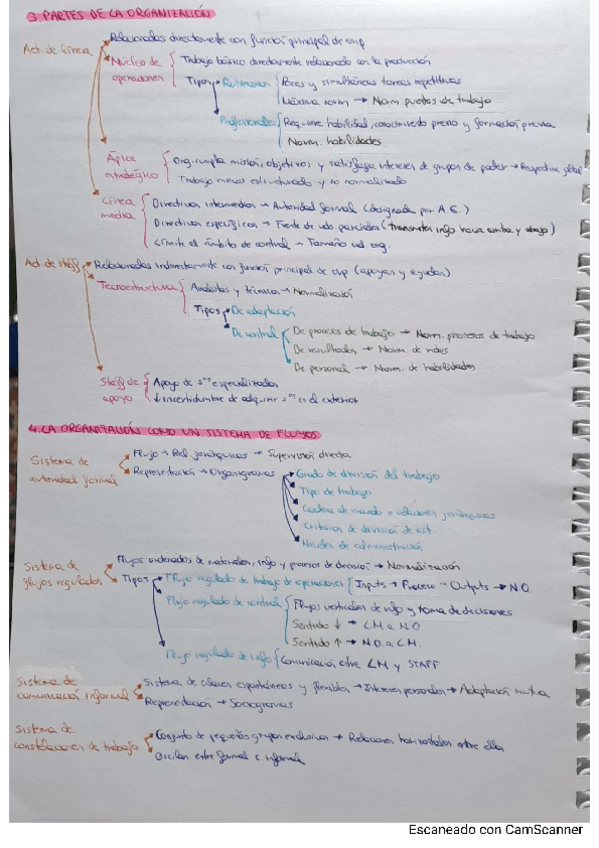 3. PARTES DE LA ORGANIZACIÓN
Act. de línea
Relacionadas directamente con función principal de emp
Núcleo de operaciones
Trabajo básico directamente relacionado con la producción
Tipos → Rutinarios
Pocas y simultáneas tareas repetitivas
Máxima norm → Norm. puestos de trabajo
Profesionales
Requiere habilidad, conocimiento previo y formación previa
Norm. habilidades
Ápice estratégico
Org. cumpla misión, objetivos y satisfaga intereses de grupos de poder → Perspectiva global
Trabajo menos estructurado y no normalizado
Línea media
Directivos intermedios → Autoridad formal (designada por A.E.)
Directivos específicos → Frente de uds. parciales (transmiten info hacia arriba y abajo)
Límite el ámbito de control → Tamaño ud org.
Act. de staff
Relacionadas indirectamente con función principal de emp (apoyan y ayudan)
Tecnoestructura
Analistas y técnicos → Normalización
Tipos → De adaptación
De control
De proceso de trabajo → Norm. procesos de trabajo
De resultados → Norm. de
De personal → Norm. de habilidades
Staff de apoyo
Apoyo de sᵒˢ especializados
↓ incertidumbre de adquirir sᵒˢ en el exterior
4. LA ORGANIZACIÓN COMO UN SISTEMA DE FLUJOS
Sistema de autoridad formal
Flujo → Rel. jerárquicas → Supervisión directa
Representación → Organigramas
Grado de división del trabajo
Tipo de trabajo
Cadena de mando e relaciones jerárquicas
Criterios de división de est.
Niveles de administración
Sistema de flujos regulados
Flujos ordenados de materiales, info y procesos de decisión → Normalización
Tipos → Flujo regulado de trabajo de operaciones
Inputs → Proceso → Outputs → N.O
Flujo regulado de control
Flujos verticales de info y toma de decisiones
Sentido ↓ → L.M a N.O
Sentido ↑ → N.O. a L.M.
Flujo regulado de info
Comunicación entre L.M y STAFF
Sistema de comunicación informal
Sistema de canales espontáneos y flexibles → Intereses personales → Adaptación mutua
Representación → Sociogramas
Sistema de constelaciones de trabajo
Conjunto de pequeños grupos exclusivos → Relaciones horizontales entre ellos
Oscilan entre formal e informal
Escaneado con CamScanner